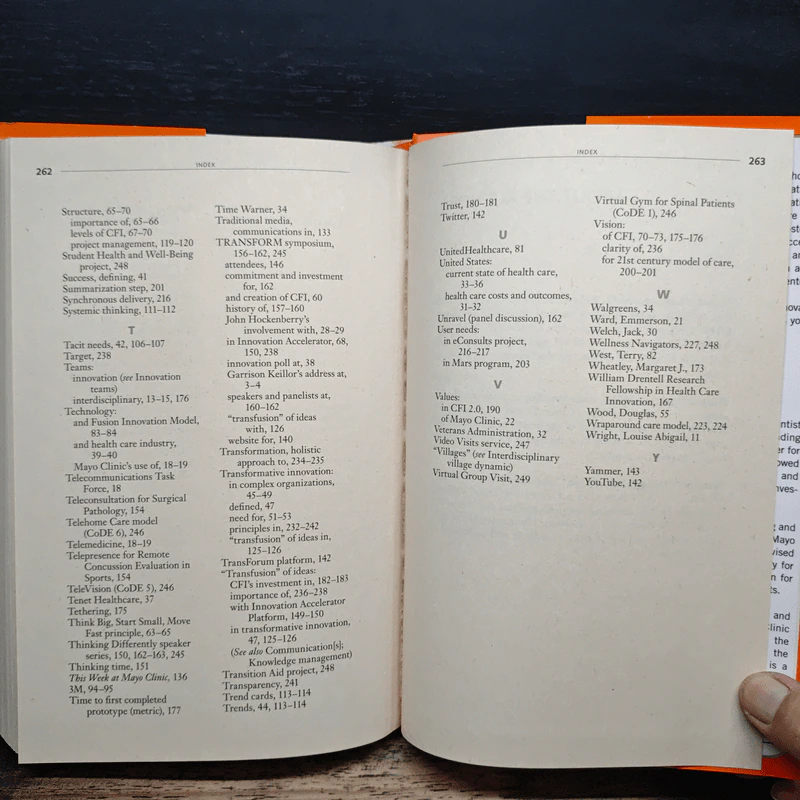 262
INDEX
Structure, 65–70
importance of, 65–66
levels of CFI, 67–70
project management, 119–120
Student Health and Well-Being
project, 248
Success, defining, 41
Summarization step, 201
Synchronous delivery, 216
Systemic thinking, 111–112
T
Tacit needs, 42, 106–107
Target, 238
Teams:
innovation (see Innovation
teams)
interdisciplinary, 13–15, 176
Technology:
and Fusion Innovation Model,
83–84
and health care industry,
39–40
Mayo Clinic's use of, 18–19
Telecommunications Task
Force, 18
Teleconsultation for Surgical
Pathology, 154
Telehome Care model
(CoDE 6), 246
Telemedicine, 18–19
Telepresence for Remote
Concussion Evaluation in
Sports, 154
TeleVision (CoDE 5), 246
Tenet Healthcare, 37
Tethering, 175
Think Big, Start Small, Move
Fast principle, 63–65
Thinking Differently speaker
series, 150, 162–163, 245
Thinking time, 151
This Week at Mayo Clinic, 136
3M, 94–95
Time to first completed
prototype (metric), 177
Time Warner, 34
Traditional media,
communications in, 133
TRANSFORM symposium,
156–162, 245
attendees, 146
commitment and investment
for, 162
and creation of CFI, 60
history of, 157–160
John Hockenberry's
involvement with, 28–29
in Innovation Accelerator, 68,
150, 238
innovation poll at, 38
Garrison Keillor's address at,
3–4
speakers and panelists at,
160–162
"transfusion" of ideas
with, 126
website for, 140
Transformation, holistic
approach to, 234–235
Transformative innovation:
in complex organizations,
45–49
defined, 47
need for, 51–53
principles in, 232–242
"transfusion" of ideas in,
125–126
TransForum platform, 142
"Transfusion" of ideas:
CFI's investment in, 182–183
importance of, 236–238
with Innovation Accelerator
Platform, 149–150
in transformative innovation,
47, 125–126
(See also Communication[s];
Knowledge management)
Transition Aid project, 248
Transparency, 241
Trend cards, 113–114
Trends, 44, 113–114
INDEX
263
Trust, 180–181
Twitter, 142
U
UnitedHealthcare, 81
United States:
current state of health care,
33–36
health care costs and outcomes,
31–32
Unravel (panel discussion), 162
User needs:
in eConsults project,
216–217
in Mars program, 203
V
Values:
in CFI 2.0, 190
of Mayo Clinic, 22
Veterans Administration, 32
Video Visits service, 247
"Villages" (see Interdisciplinary
village dynamic)
Virtual Group Visit, 249
Virtual Gym for Spinal Patients
(CoDE 1), 246
Vision:
of CFI, 70–73, 175–176
clarity of, 236
for 21st century model of care,
200–201
W
Walgreens, 34
Ward, Emmerson, 21
Welch, Jack, 30
Wellness Navigators, 227, 248
West, Terry, 82
Wheatley, Margaret J., 173
William Drentell Research
Fellowship in Health Care
Innovation, 167
Wood, Douglas, 55
Wraparound care model, 223, 224
Wright, Louise Abigail, 11
Y
Yammer, 143
YouTube, 142